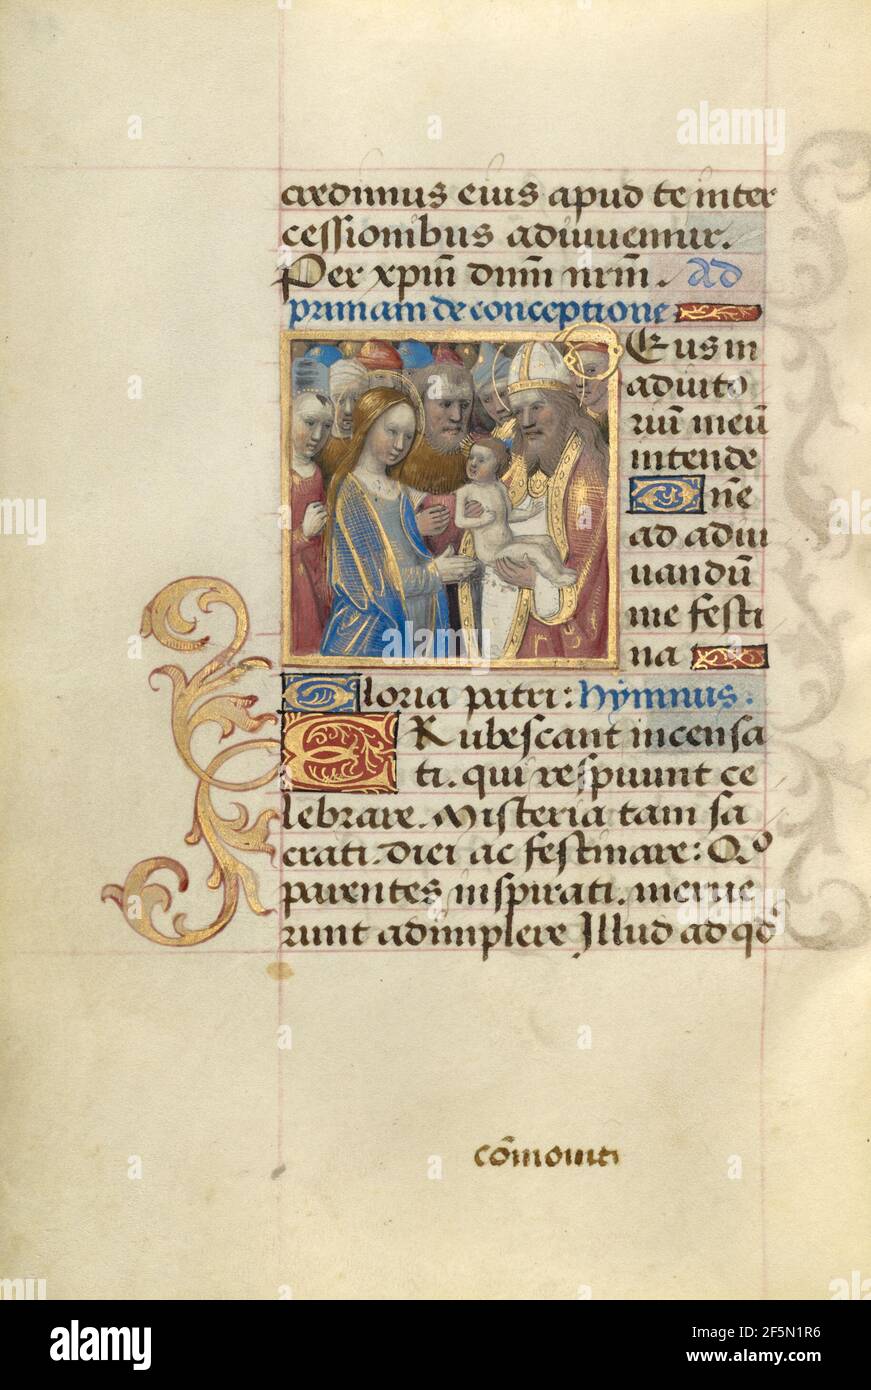 credimus eius apud te inter
cessionibus adiuuemur.
Per xp̄m dn̄m nr̄m. Ad
primam de conceptione
Deus in
adiuto
riū meū
intende
Dn̄e
ad adiu
uandū
me festi
na
Gloria patri: hymnus.
ERubescant incensa
ti. qui respuunt ce
lebrare. Misteria tam sa
crati. diei ac festinare: Qđ
parentes inspirati. merue
runt adimplere Illud ad qđ
com̄ouiti
alamy
alamy
Image ID: 2F5N1R6
www.alamy.com